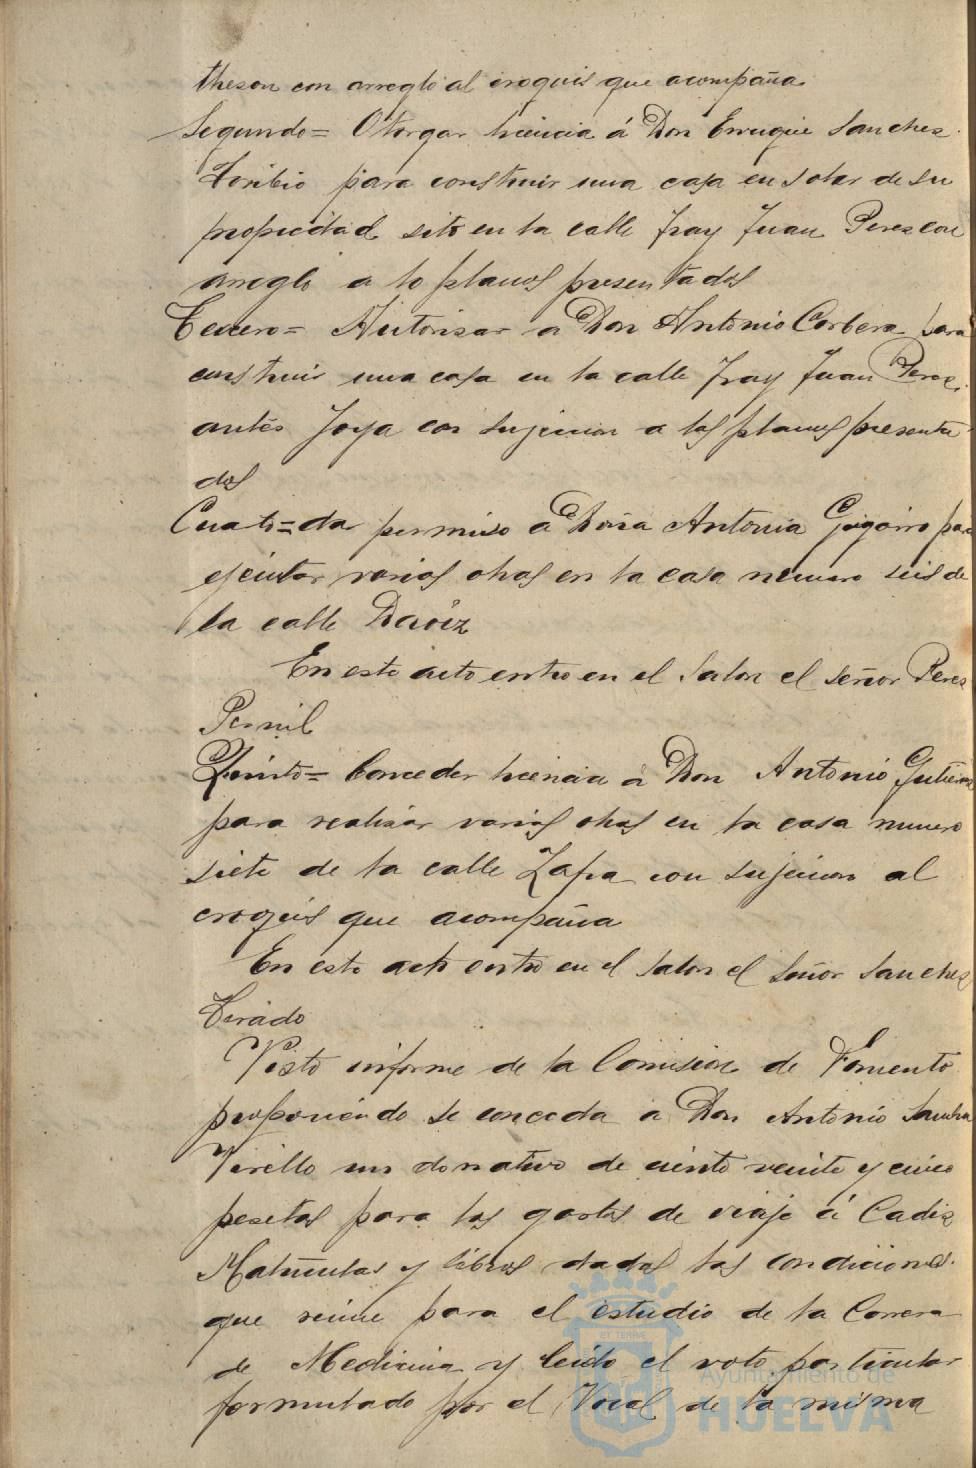 theson con arreglo al croquis que acompaña
Segundo = Otorgar licencia á Don Enrrique Sanchez
Toribio para construir una casa en solar de su
propiedad sito en la calle Fray Juan Perez con
arreglo a lo planos presentados
Tercero = Autorisar a Don Antonio Corbera para
construir una casa en la calle Fray Juan Perez
antés Joya con sujecion a los planos presenta
dos
Cuarto = da permiso a Doña Antonia para
ejecutar varias obras en la casa numero seis de
la calle Daoiz
En este acto entro en el Salon el señor Perez
Pernil
Quinto = Conceder licencia á Don Antonio Gutierrez
para realizar varias obras en la casa numero
siete de la calle Zapa con sujecion al
croquis que acompaña
En este acto entro en el salon el señor Sanchez
Tirado
Visto informe de la Comision de Fomento
proponiendo se conceda a Don Antonio Sanchez
un donativo de ciento veinte y cinco
pesetas para los gastos de viaje á Cadiz
Matriculas y libros dadas las condiciones
que reune para el estudio de la Carrera
de Medicina y leido el voto particular
formulado por el Vocal de la misma
Ayuntamiento de
HUELVA